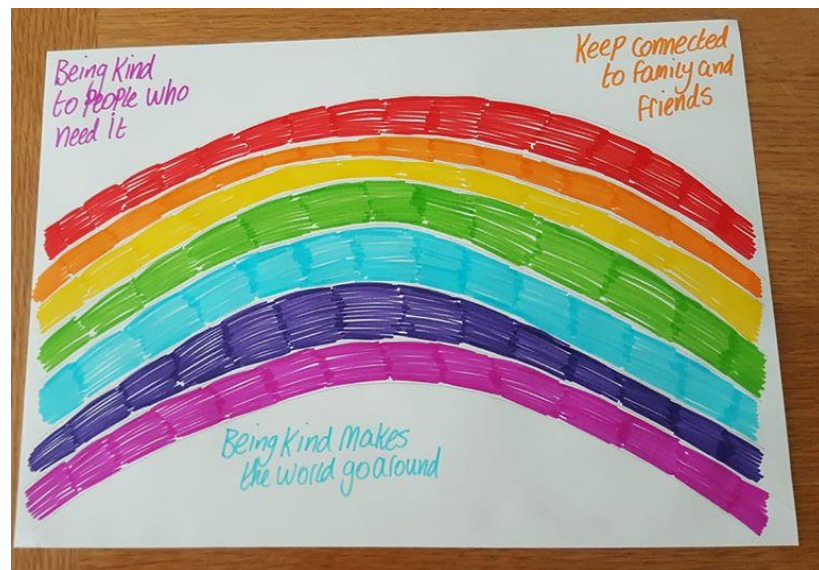 Being Kind
to People who
need it
Keep connected
to family and
friends
Being Kind Makes
the world go around